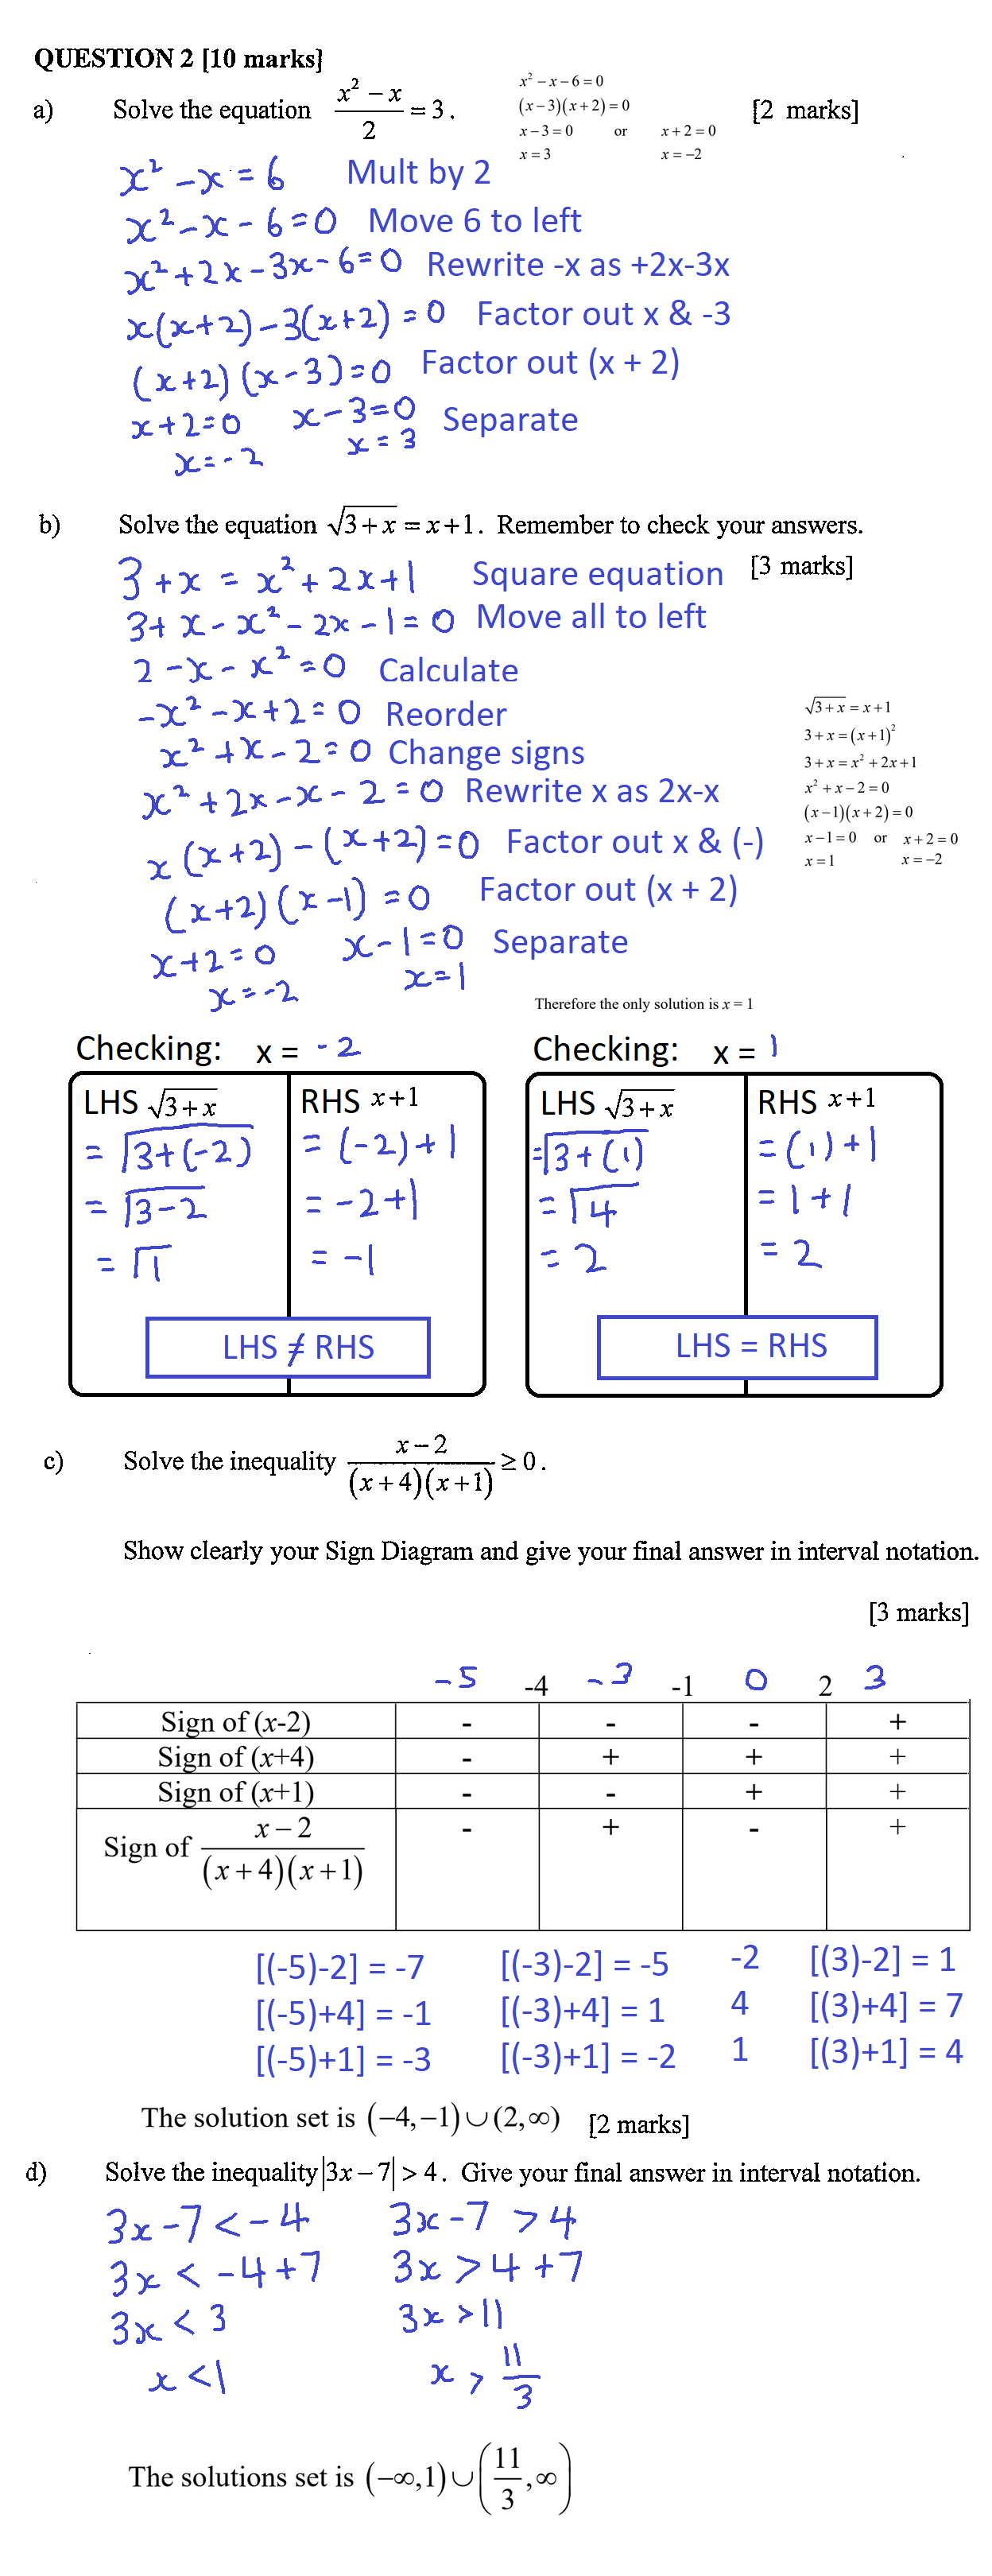 QUESTION 2 [10 marks]
a) Solve the equation (x² − x)/2 = 3. [2 marks]
x² − x − 6 = 0
(x − 3)(x + 2) = 0
x − 3 = 0 or x + 2 = 0
x = 3 x = −2
x² − x = 6 Mult by 2
x² − x − 6 = 0 Move 6 to left
x² + 2x − 3x − 6 = 0 Rewrite -x as +2x-3x
x(x+2) − 3(x+2) = 0 Factor out x & -3
(x+2)(x−3) = 0 Factor out (x + 2)
x+2=0 x−3=0 Separate
x=−2 x=3
b) Solve the equation √(3+x) = x+1. Remember to check your answers.
[3 marks]
3+x = x²+2x+1 Square equation
3+x−x²−2x−1=0 Move all to left
2−x−x²=0 Calculate
−x²−x+2=0 Reorder
x²+x−2=0 Change signs
x²+2x−x−2=0 Rewrite x as 2x-x
x(x+2)−(x+2)=0 Factor out x & (-)
(x+2)(x−1)=0 Factor out (x + 2)
x+2=0 x−1=0 Separate
x=−2 x=1
√(3+x) = x+1
3+x = (x+1)²
3+x = x²+2x+1
x²+x−2=0
(x−1)(x+2)=0
x−1=0 or x+2=0
x=1 x=−2
Therefore the only solution is x = 1
Checking: x = -2
LHS √(3+x) RHS x+1
= √(3+(−2)) = (−2)+1
= √(3−2) = −2+1
= √1 = −1
LHS ≠ RHS
Checking: x = 1
LHS √(3+x) RHS x+1
= √(3+(1)) = (1)+1
= √4 = 1+1
= 2 = 2
LHS = RHS
c) Solve the inequality (x−2)/((x+4)(x+1)) ≥ 0.
Show clearly your Sign Diagram and give your final answer in interval notation.
[3 marks]
-5 -4 -3 -1 0 2 3
Sign of (x-2) - - - +
Sign of (x+4) - + + +
Sign of (x+1) - - + +
Sign of (x−2)/((x+4)(x+1)) - + - +
[(-5)-2] = -7 [(-3)-2] = -5 -2 [(3)-2] = 1
[(-5)+4] = -1 [(-3)+4] = 1 4 [(3)+4] = 7
[(-5)+1] = -3 [(-3)+1] = -2 1 [(3)+1] = 4
The solution set is (−4,−1)∪(2,∞) [2 marks]
d) Solve the inequality |3x−7| > 4. Give your final answer in interval notation.
3x−7 < −4 3x−7 > 4
3x < −4+7 3x > 4+7
3x < 3 3x > 11
x < 1 x > 11/3
The solutions set is (−∞,1)∪(11/3,∞)